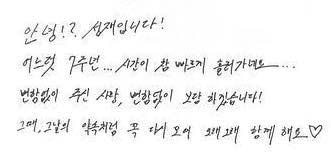 안녕!?, 성재입니다!
어느덧 7주년... 시간이 참 빠르게 흘러가네요...
변함없이 주신 사랑, 변함없이 보답 하겠습니다!
그때, 그날의 약속처럼 꼭 다시 모여 오래오래 함께 해요♡